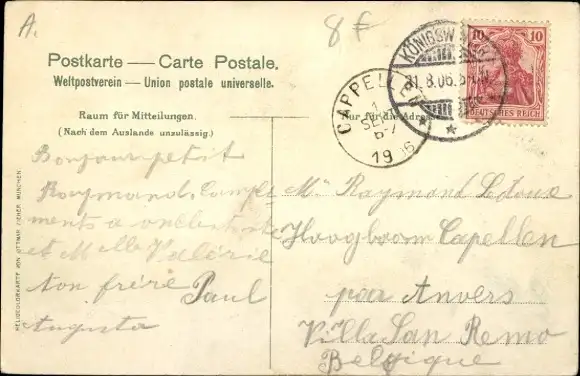 A.
8 F
Postkarte — Carte Postale.
Weltpostverein — Union postale universelle.
Raum für Mitteilungen.
(Nach dem Auslande unzulässig.)
Nur für die Adresse
KÖNIGSWINTER
31.8.06.
CAPPELLEN
1
SEPT
6-7
1906
10 10
DEUTSCHES REICH
Bonjour petit
Raymond. Compli
ments a oncle
et Melle Valérie
ton frère Paul
Augusta
Mr Raymond Ledoux
Hoogboom Capellen
par Anvers
Villa San Remo
Belgique
HELIOCOLORKARTE VON OTTMAR ZIEHER, MÜNCHEN